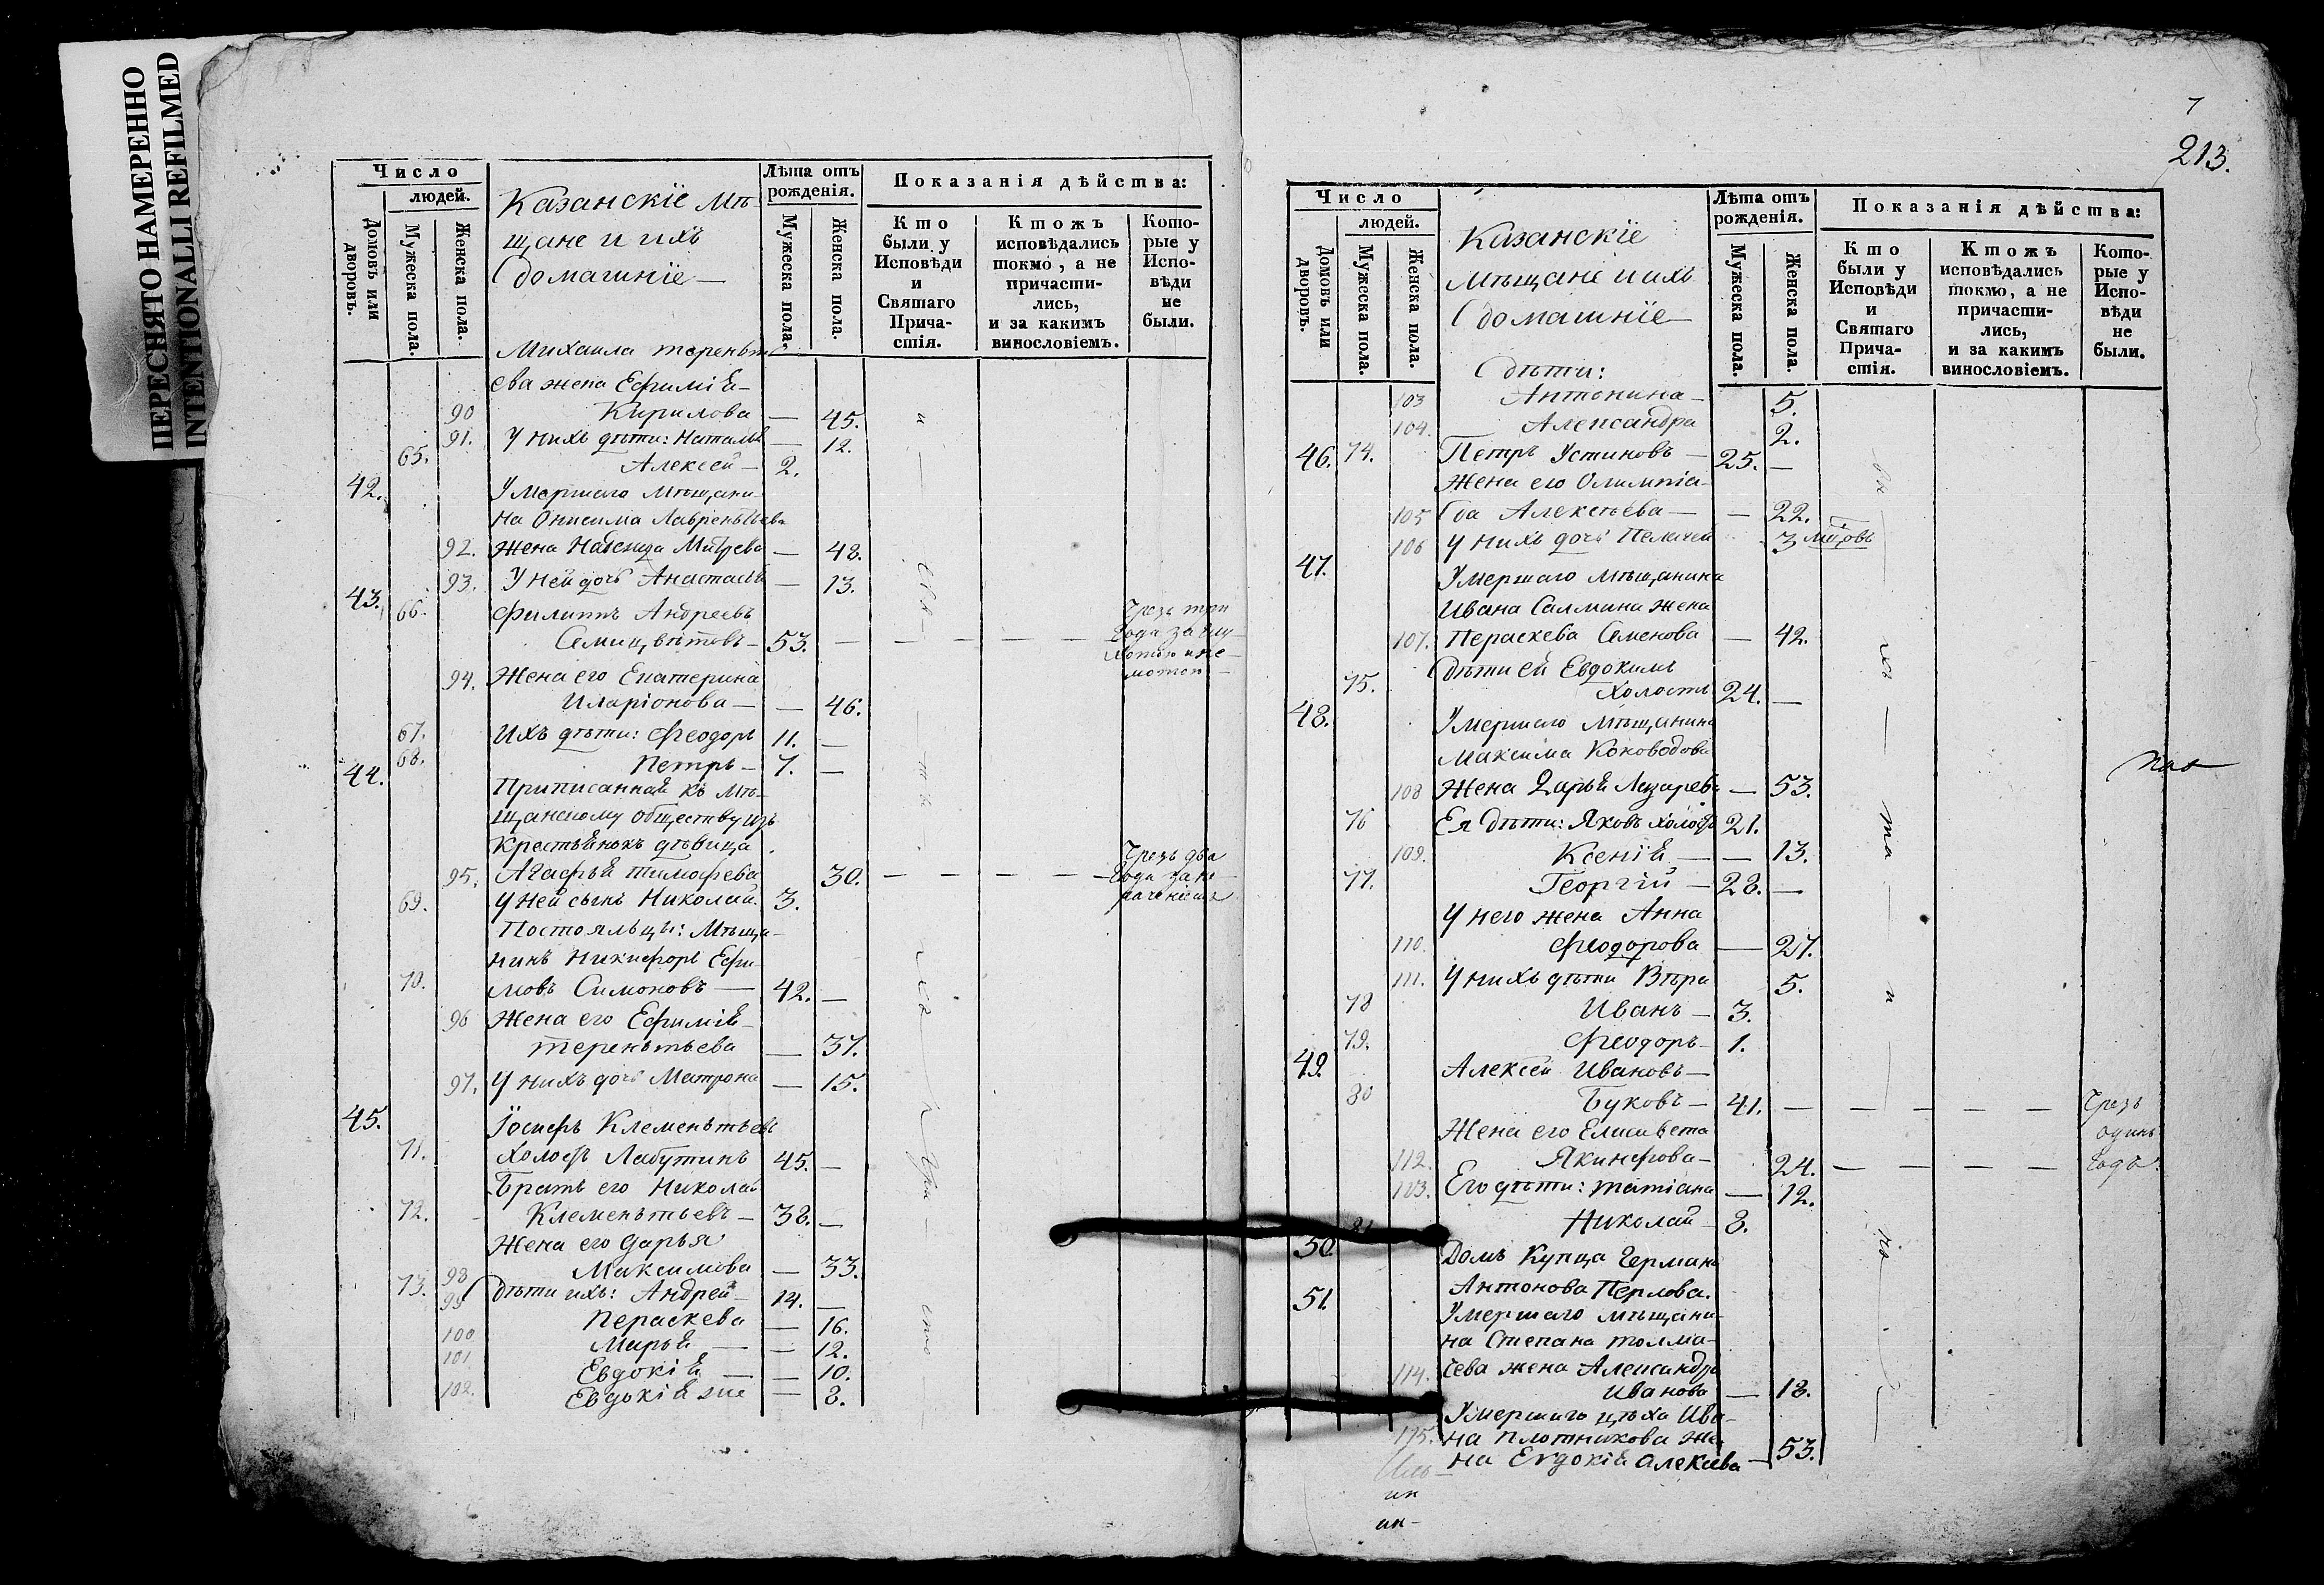 ПЕРЕСНЯТО НАМЕРЕННО
INTENTIONALLI REFILMED
Число
людей.
Домовъ или дворовъ.
Мужеска пола.
Женска пола.
Казанскіе мѣ-
щане и ихъ
домашніе —
Лѣта отъ рожденія.
Мужеска пола.
Женска пола.
Показанія дѣйства:
Кто были у Исповѣди и Святаго Прича- стія.
Ктожъ исповѣдались токмо, а не причасти- лись, и за какимъ винословіемъ.
Кото- рые у Испо- вѣди не были.
Михаила теренть
ева жена Ефимія —
90 Кирилова — 45.
91. У нихъ дѣти: Наталья — 12.
65. Алексей — 2.
42. Умершаго мѣщани-
на Онисима Лаврентьева
92. жена Надежда Мит҃рева — 48.
93. У ней дочь Анастасья — 13.
43. 66. Филиппъ Андреевъ
Семицвѣтовъ — 53. — — — — — Чрезъ три года за
94. Жена его Екатерина
Иларіонова — — 46.
67. Ихъ дѣти: Феодоръ 11. —
68. Петръ — 7. —
44. Приписанная къ мѣ-
щанскому обществу изъ
крестьянокъ дѣвица
95. Агафья тимофева 30. — — — — — Чрезъ два года за не
69. У ней сынъ Николай. 3.
Постояльцы: Мѣща-
нинъ Никифоръ Ефи-
70. мовъ Симоновъ — 42. —
96 Жена его Ефимія —
терентьева — 37.
97. У нихъ дочь Матрона — 15.
45. Іосифъ Клементьевъ
71. Холостъ Лабутинъ 45. —
Братъ его Николай
72. Клементьевъ — 38. —
Жена его Дарья
98 Максимова — 33.
73. Дѣти ихъ: Андрей — 14. —
99 Пераскева — 16.
100 Марья — — 12.
101 Евдокія — — 10.
102. Евдокія же — 8.
7
213.
Число
людей.
Домовъ или дворовъ.
Мужеска пола.
Женска пола.
Казанскіе
мѣщане и ихъ
домашніе —
Лѣта отъ рожденія.
Мужеска пола.
Женска пола.
Показанія дѣйства:
Кто были у Исповѣди и Святаго Прича- стія.
Ктожъ исповѣдались токмо, а не причасти- лись, и за какимъ винословіемъ.
Кото- рые у Испо- вѣди не были.
дѣти:
103 Антонина — 5.
104. Александра 2.
46. 74. Петръ Устиновъ — 25. —
Жена его Олимпіа-
105 да Алексѣева — — 22.
106 У нихъ дочь Пелагея 3
47. Умершаго мѣщанина
Ивана Салмина жена
107. Пераскева Семенова — 42.
Дѣти ей Евдокимъ
75. Холостъ 24. —
48. Умершаго мѣщанина
Максима Коноводова
108 Жена Дарья Лазарева — 53.
76 Ея дѣти: Яковъ холостъ 21.
109. Ксенія — — 13.
77. Георгій — 28. —
У него жена Анна
110. Феодорова — 27.
111. У нихъ дѣти Вѣра 5.
78 Иванъ — 3.
79. Феодоръ — 1.
49. Алексей Ивановъ —
80 Буковъ — 41. — — — — — Чрезъ одинъ годъ.
Жена его Елисавета
112. Якинфова — 24. — — — —
113. Его дѣти: татіана — 12.
81 Николай — 8.
50. Домъ Купца Германа
Антонова Перлова.
51. Умершаго мѣщани-
на Степана толма-
114. чева жена Александра
Иванова — 18.
Умершаго цѣха Ива-
115. на Плотникова же-
на Евдокія Алексева — 53.